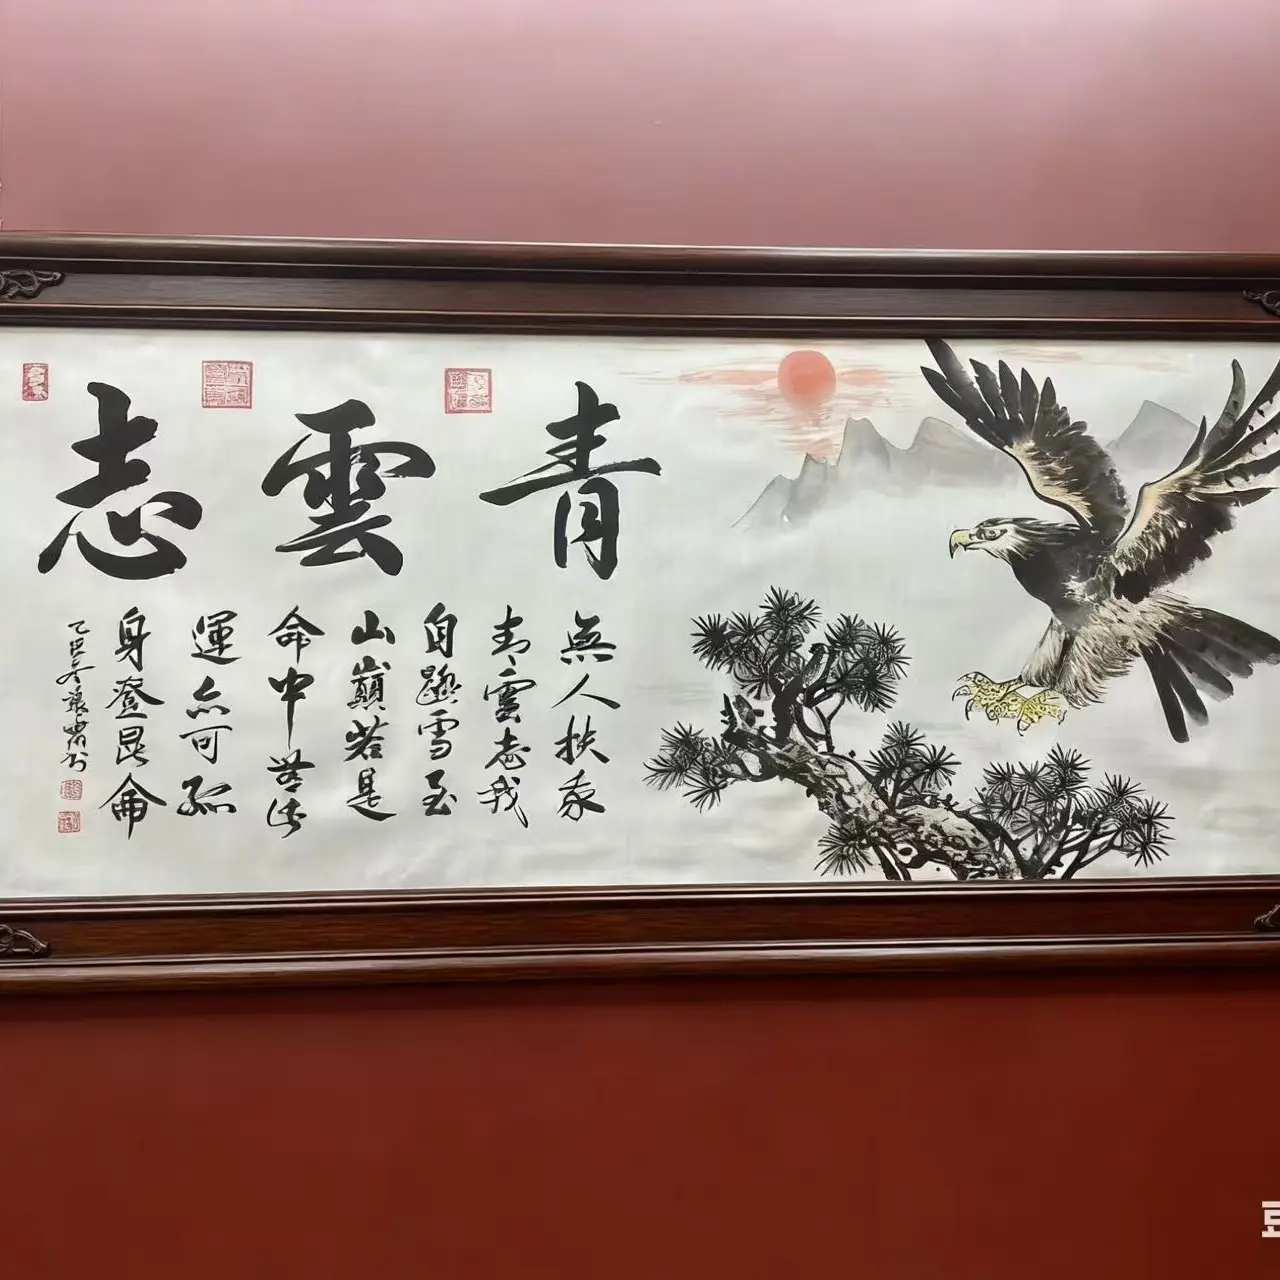 青雲志
無人扶我
青雲志我
自踏雪至
山巔若是
命中無此
運亦可孤
身登昆侖
乙巳冬